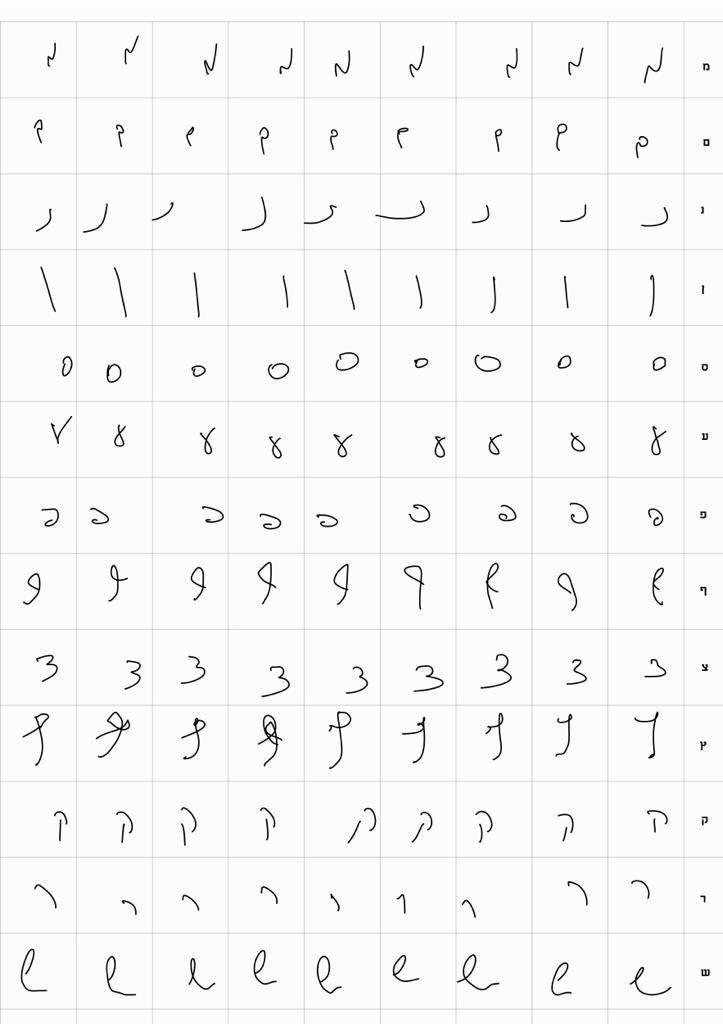 מ מ מ מ מ מ מ מ מ מ
ם ם ם ם ם ם ם ם ם ם
נ נ נ נ נ נ נ נ נ נ
ן ן ן ן ן ן ן ן ן ן
ס ס ס ס ס ס ס ס ס ס
ע ע ע ע ע ע ע ע ע ע
פ פ פ פ פ פ פ פ פ פ
ף ף ף ף ף ף ף ף ף ף
צ צ צ צ צ צ צ צ צ צ
ץ ץ ץ ץ ץ ץ ץ ץ ץ ץ
ק ק ק ק ק ק ק ק ק ק
ר ר ר ר ר ר ר ר ר ר
ש ש ש ש ש ש ש ש ש ש